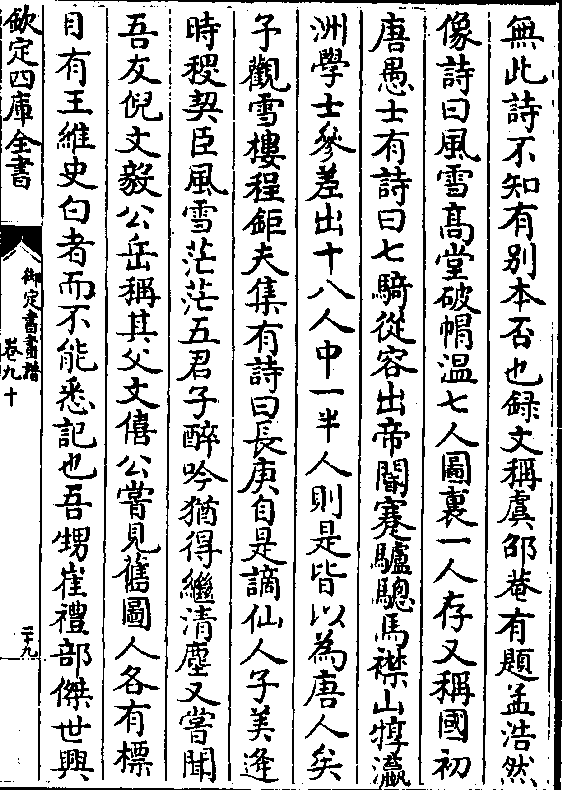 無此詩不知有别本否也録文稱虞邵菴有題孟浩然
像詩曰風雪高堂破帽温七人圖裏一人存又稱國初
唐愚士有詩曰七騎從容出帝閽蹇驢驄馬襟山犉瀛
洲學士參差出十八人中一半人則是皆以為唐人矣
子觀雪樓程鉅夫集有詩曰長庚自是謫仙人子美逢
時稷契臣風雪茫茫五君子醉吟猶得繼清塵又嘗聞
吾友倪文毅公岳稱其父文僖公嘗見舊圖人各有標
目有王維史白者而不能悉記也吾甥崔禮部傑世興
欽定四庫全書
御定書畫譜
卷九十
二十九